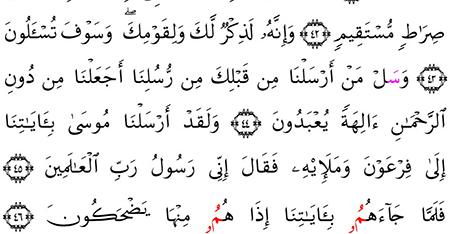 صِرَٰطٖ مُّسۡتَقِيمٖ ﴿٤٢﴾ وَإِنَّهُۥ لَذِكۡرٞ لَّكَ وَلِقَوۡمِكَۖ وَسَوۡفَ تُسۡـَٔلُونَ
﴿٤٣﴾ وَسَلۡ مَنۡ أَرۡسَلۡنَا مِن قَبۡلِكَ مِن رُّسُلِنَا أَجَعَلۡنَا مِن دُونِ
ٱلرَّحۡمَٰنِ ءَالِهَةٗ يُعۡبَدُونَ ﴿٤٤﴾ وَلَقَدۡ أَرۡسَلۡنَا مُوسَىٰ بِـَٔايَٰتِنَا
إِلَىٰ فِرۡعَوۡنَ وَمَلَإِيْهِۦ فَقَالَ إِنِّي رَسُولُ رَبِّ ٱلۡعَٰلَمِينَ ﴿٤٥﴾
فَلَمَّا جَآءَهُمُۥ بِـَٔايَٰتِنَا إِذَا هُمُۥ مِنۡهَا يَضۡحَكُونَ ﴿٤٦﴾